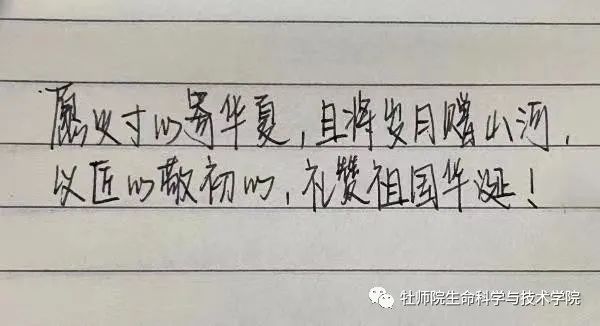 愿以寸心寄华夏,且将岁月赠山河,
以匠心敬初心,礼赞祖国华诞!
牡师院生命科学与技术学院